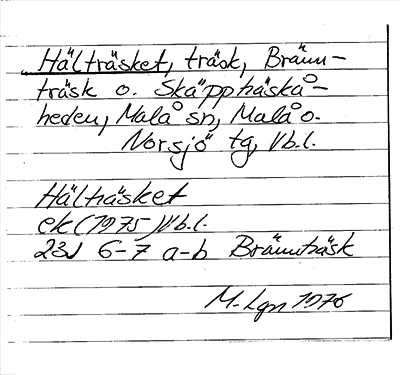 Hälträsket, träsk, Bränn-
träsk o. Skäppträskå-
heden, Malå sn, Malå o.
Norsjö tg, Vb.l.
Hälträsket
ek (1975) Vb.l.
23J 6-7 a-b Brännträsk
M. Lgn 1976